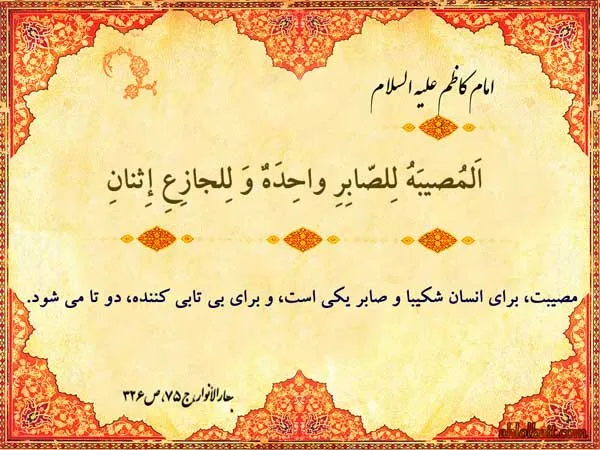 امام کاظم علیه السلام
اَلمُصیبَهُ لِلصّابِرِ واحِدَهٌ وَ لِلجازِعِ إِثنانِ
مصیبت، برای انسان شکیبا و صابر یکی است، و برای بی تابی کننده، دو تا می شود.
بحارالأنوار، ج ۷۵، ص ۳۲۶